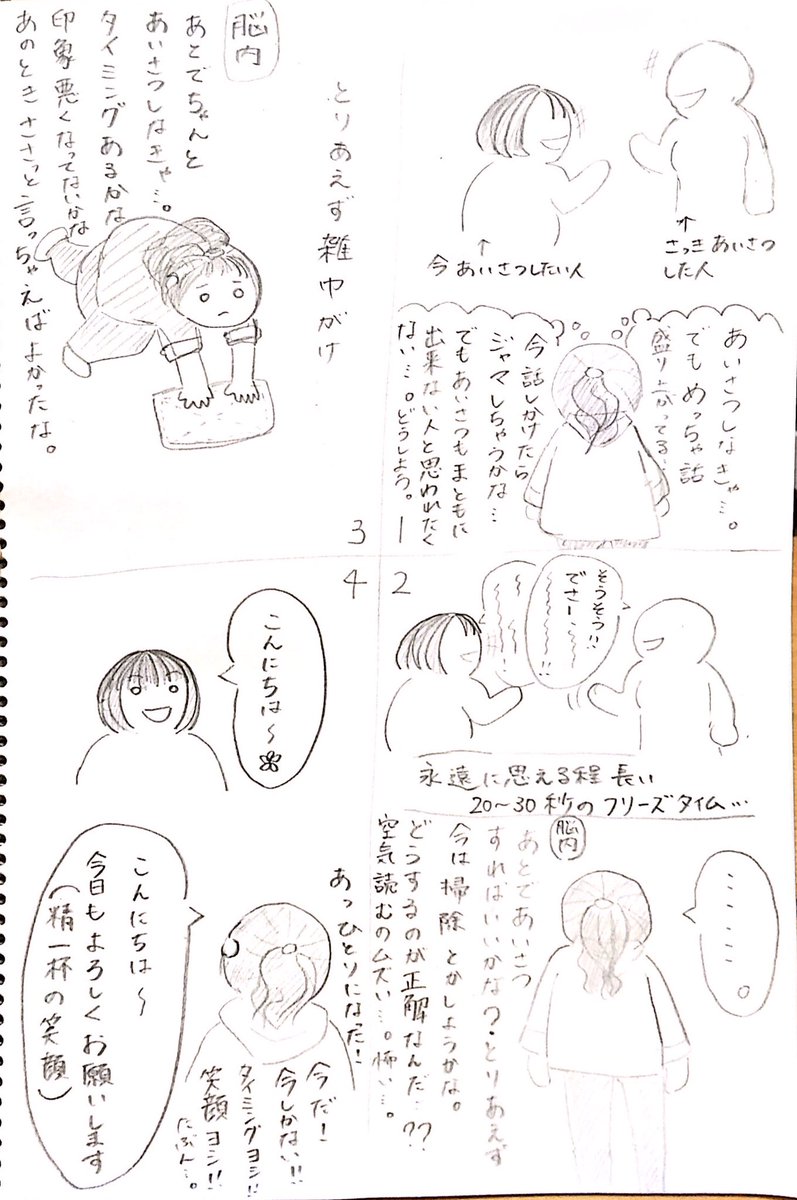 さっきあいさつ
した人
今あいさつしたい人
あいさつしなきゃ…。
でもめっちゃ話
盛り上がってる…
今話しかけたら
ジャマしちゃうかな…
でもあいさつもまともに
出来ない人と思われたく
ない…。どうしよう。
1
2
そうそう!!
でさー、〜〜!!
〜〜〜〜!
永遠に思える程長い
20〜30秒のフリーズタイム…
………。
脳内
あとであいさつ
すればいいかな?とりあえず
今は掃除とかしようかな。
どうするのが正解なんだ…??
空気読むのムズい…。怖い…。
3
とりあえず雑巾がけ
脳内
あとでちゃんと
あいさつしなきゃ…。
タイミングあるかな
印象悪くなってないかな
あのときささっと言っちゃえばよかったな。
4
こんにちは〜
あっひとりになった!
今だ!
今しかない!!
タイミングヨシ!!
笑顔ヨシ!!
たぶん…。
こんにちは〜
今日もよろしくお願いします
(精一杯の笑顔)